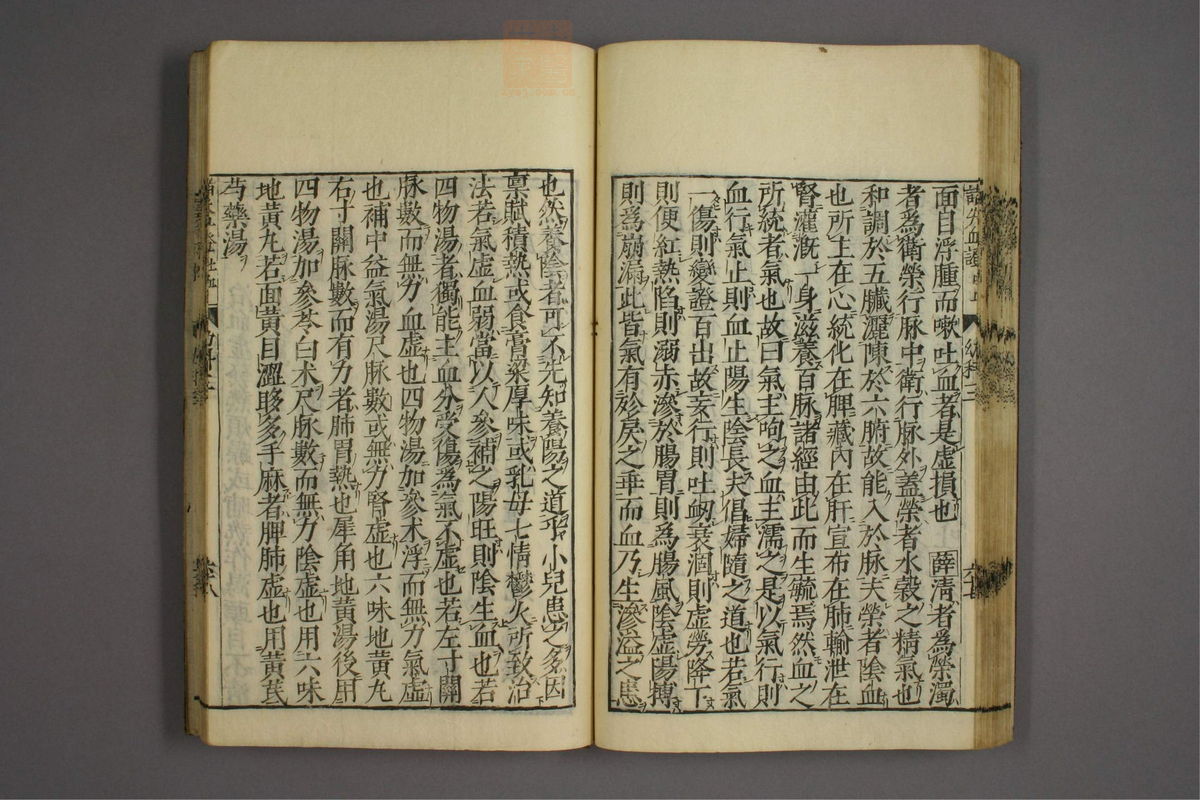 面目浮腫而嗽吐血者是虚損也 薛清者為榮濁
者為衛榮行脉中衛行脉外蓋榮者水穀之精氣也
和調於五臟灑陳於六腑故能入於脉夫榮者陰血
也所主在心統化在脾藏內在肝宣布在肺輸泄在
腎灌溉一身滋養百脉諸經由此而生毓焉然血之
所統者氣也故曰氣主呴之血主濡之是以氣行則
血行氣止則血止陽生陰長夫倡婦隨之道也若氣
一傷則變證百出故妄行則吐衂衰涸則虚勞降下
則便紅熱陷則溺赤滲於腸胃則為腸風陰虚陽搏
則為崩漏此皆氣有紾戾之乖而血乃生滲溢之患
也然養陰者可不先知養陽之道乎小兒患之多因
禀賦積熱或食膏粱厚味或乳母七情鬱火所致治
法若氣虚血弱當以人參補之陽旺則陰生血也若
四物湯者獨能主血分受傷為氣不虚也若左寸關
脉數而無力血虚也四物湯加參术浮而無力氣虚
也補中益氣湯尺脉數或無力腎虚也六味地黄丸
右寸關脉數而有力者肺胃熱也犀角地黄湯後用
四物湯加參苓白术尺脉數而無力陰虚也用六味
地黄丸若面黄目澀眵多手麻者脾肺虚也用黄芪
芍藥湯